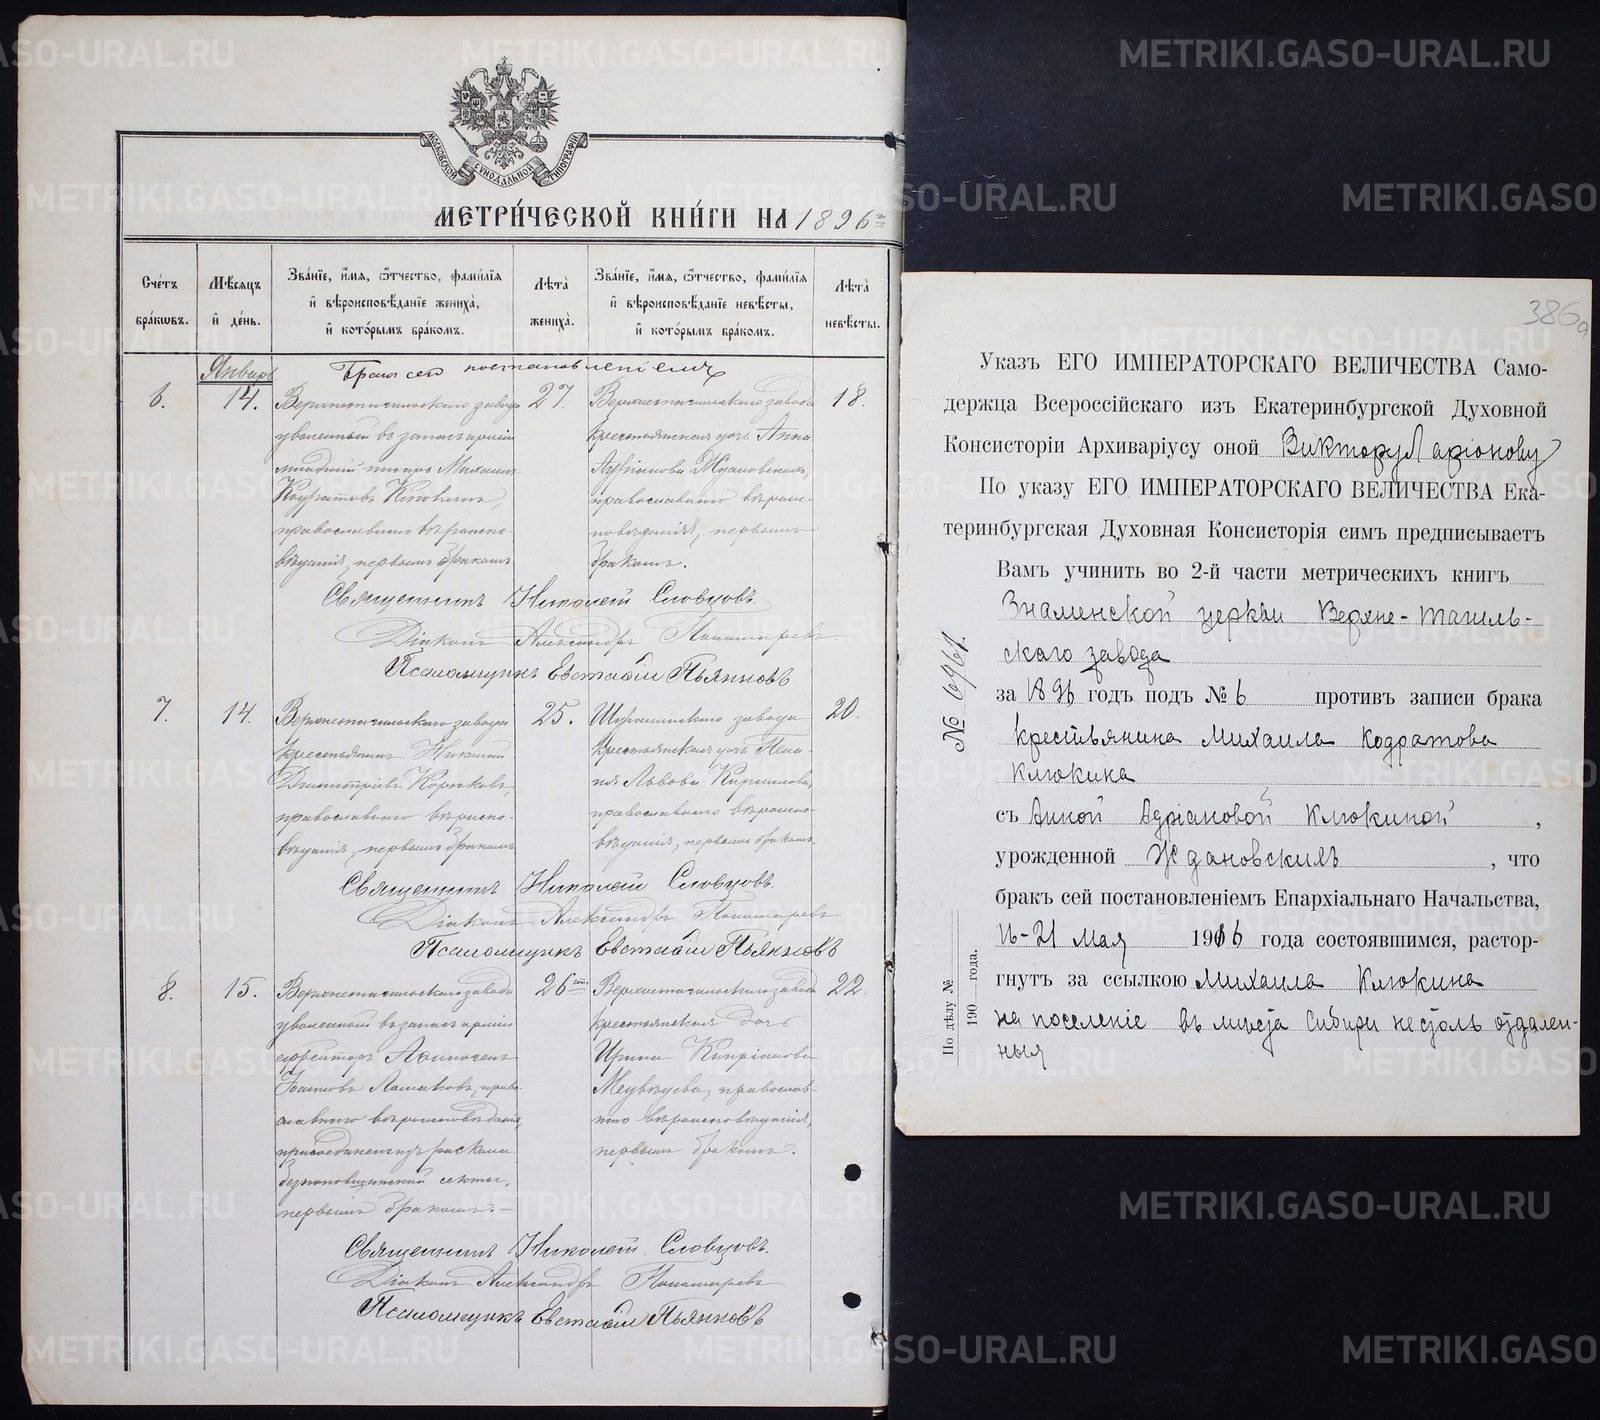 МОСКОВСКОЙ СУНОДАЛЬНОЙ ТИПОГРАФІИ
МЕТРИ́ЧЕСКОЙ КНИ́ГИ НА 1896 г.
Сче́тъ бра́кѡвъ.
Мѣ́сяцъ и҆ де́нь.
Зва́нїе, и҆́мя, ѻ҆́тчество, фами́лїя и҆ вѣроисповѣ́данїе жениха̀, и҆ кото́рымъ бра́комъ.
Лѣ́та̀ жениха̀.
Зва́нїе, и҆́мя, ѻ҆́тчество, фами́лїя и҆ вѣроисповѣ́данїе невѣ́сты, и҆ кото́рымъ бра́комъ.
Лѣ́та̀ невѣ́сты.
Январь
Бракъ сей постановленіемъ
6.
14.
Верхнетагильскаго завода
уволенный въ запасъ арміи
младшій писарь Михаилъ
Кондратовъ Клюкинъ,
православнаго вѣроиспо-
вѣданія, первымъ бракомъ
27.
Верхнетагильскаго завода
крестьянская дочь Анна
Адріанова Ждановскихъ,
православнаго вѣроис-
повѣданія, первымъ
бракомъ.
18.
Священникъ Николай Словцовъ.
Діаконъ Александръ Пономаревъ.
Псаломщикъ Евстафій Пьянковъ
7.
14.
Верхнетагильскаго завода
крестьянинъ Николай
Димитріевъ Корюковъ,
православнаго вѣроиспо-
вѣданія, первымъ бракомъ
25.
Шуралинскаго завода
крестьянская дочь Пела-
гія Львова Кириллова,
православнаго вѣроиспо-
вѣданія, первымъ бракомъ.
20.
Священникъ Николай Словцовъ.
Діаконъ Александръ Пономаревъ
Псаломщикъ Евстафій Пьянковъ
8.
15.
Верхнетагильскаго завода
уволенный въ запасъ арміи
Ломаковъ, право-
славнаго вѣроисповѣданія,
присоединенъ изъ раскола
безпоповщинской секты,
первымъ бракомъ.
26
Верхнетагильскаго завода
крестьянская дочь
Ирина Кипріанова
Медвѣдева, православ-
наго вѣроисповѣданія,
первымъ бракомъ.
22.
Священникъ Николай Словцовъ.
Діаконъ Александръ Пономаревъ
Псаломщикъ Евстафій Пьянковъ
386а
Указъ ЕГО ИМПЕРАТОРСКАГО ВЕЛИЧЕСТВА Само-
держца Всероссійскаго изъ Екатеринбургской Духовной
Консисторіи Архиваріусу оной Виктору Ларіонову
По указу ЕГО ИМПЕРАТОРСКАГО ВЕЛИЧЕСТВА Ека-
теринбургская Духовная Консисторія симъ предписываетъ
Вамъ учинить во 2-й части метрическихъ книгъ
Знаменской церкви Верхне-Тагиль-
скаго завода
за 1896 годъ подъ № 6 противъ записи брака
крестьянина Михаила Кодратова
Клюкина
съ Анной Адріановой Клюкиной,
урожденной Ждановскихъ, что
бракъ сей постановленіемъ Епархіальнаго Начальства,
16-21 Мая 1916 года состоявшимся, растор-
гнутъ за ссылкою Михаила Клюкина
на поселеніе въ мѣста Сибири не столь отдален-
ныя
№ 10961.
По дѣлу №
190 года.
METRIKI.GASO-URAL.RU